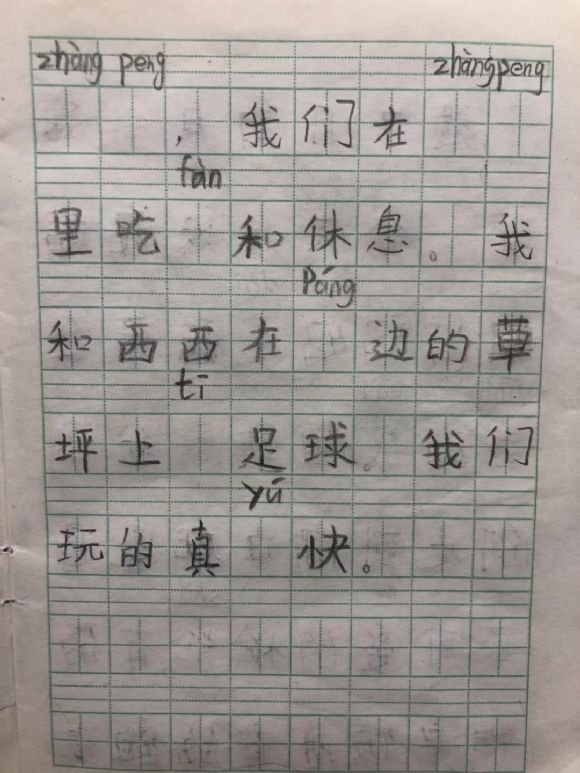 zhàng peng zhàngpeng
，我们在
fàn
里吃 和休息。我
páng
和西西在 边的草
tī
坪上 足球。我们
yú
玩的真 快。